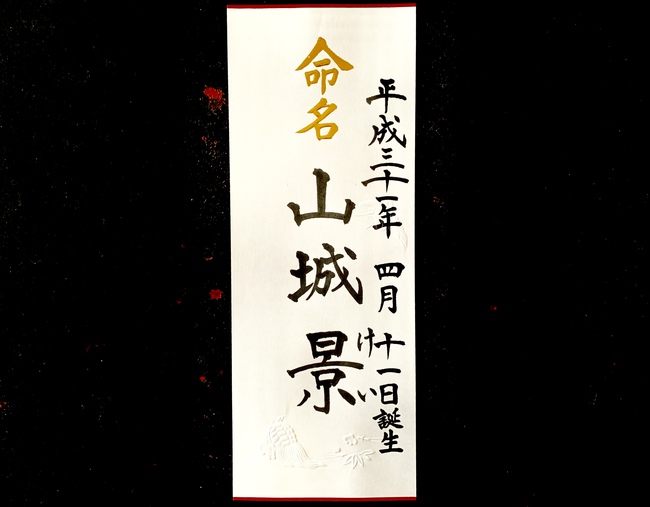 平成三十一年 四月 十一日誕生
命名
山城 景
けい